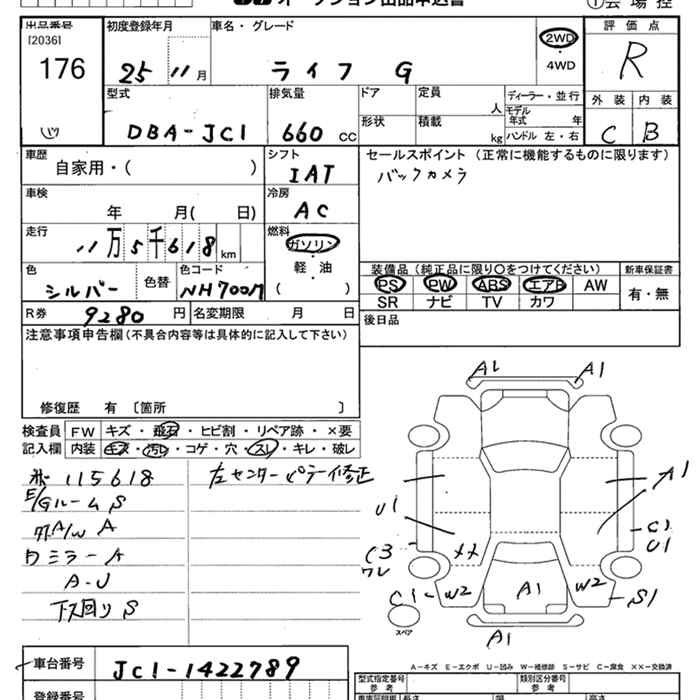 オークション出品申込書
①会場控
出品番号
[2036]
176
初度登録年月
25 11月
車名・グレード
ライフ G
2WD
・
4WD
評価点
R
外装 内装
C B
型式
DBA-JC1
排気量
660 CC
ドア
定員
人
ディーラー・並行
モデル
年式 年
形状
積載
kg
ハンドル 左・右
車歴
自家用・( )
シフト
IAT
セールスポイント (正常に機能するものに限ります)
バックカメラ
車検
年 月( 日)
冷房
AC
走行
11万5千618km
燃料
ガソリン
・
軽油
( )
色
シルバー
色替
色コード
NH700M
装備品 (純正品に限り〇をつけてください)
新車保証書
PS PW ABS エアB AW
有・無
SR ナビ TV カワ
R券 9280 円
名変期限 月 日
後日品
注意事項申告欄 (不具合内容等は具体的に記入して下さい)
修復歴 有 〔箇所 〕
検査員 FW キズ・飛石・ヒビ割・リペア跡・×要
記入欄 内装 キズ・汚レ・コゲ・穴・スレ・キレ・破レ
115618
E/Gルーム S
A/W A
ミラー A
A-U
下回り S
左センターピラー修正
A1
A1
U1
A1
C3
ワレ
××
C1
U1
C1
W2
A1
W2
S1
A1
スペア
A-キズ E-エクボ U-凹み W-補修跡 S-サビ C-腐食 ××-交換済
車台番号 JC1-1422789
登録番号
型式指定番号
参考
類別区分番号
参考